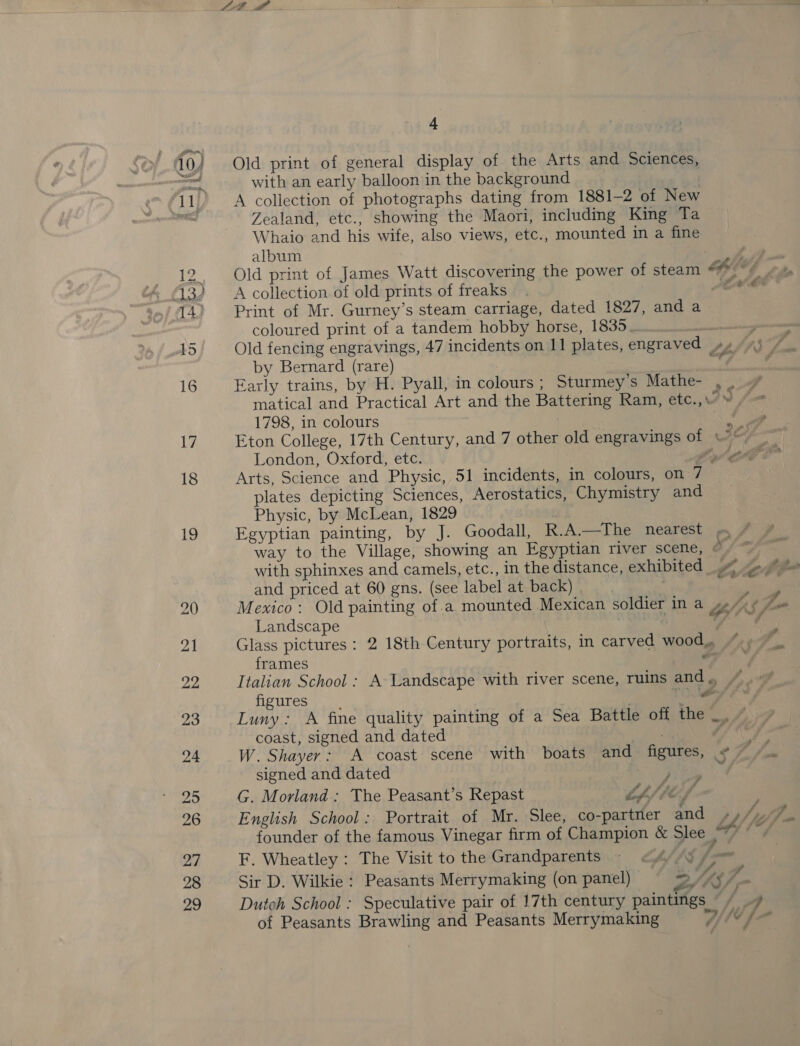 4
10 Old print of general display of the Arts and Sciences,
with an early balloon in the background
11 A collection of photographs dating from 1881-2 of New
Zealand, etc., showing the Maori, including King Ta
Whaio and his wife, also views, etc., mounted in a fine
album
12 Old print of James Watt discovering the power of steam
13 A collection of old prints of freaks
14 Print of Mr. Gurney's steam carriage, dated 1827, and a
coloured print of a tandem hobby horse, 1835
15 Old fencing engravings, 47 incidents on 11 plates, engraved
by Bernard (rare)
16 Early trains, by H. Pyall, in colours ; Sturmey's Mathe-
matical and Practical Art and the Battering Ram, etc.,
1798, in colours
17 Eton College, 17th Century, and 7 other old engravings of
London, Oxford, etc.
18 Arts, Science and Physic, 51 incidents, in colours, on 7
plates depicting Sciences, Aerostatics, Chymistry and
Physic, by McLean, 1829
19 Egyptian painting, by J. Goodall, R.A.—The nearest
way to the Village, showing an Egyptian river scene,
with sphinxes and camels, etc., in the distance, exhibited
and priced at 60 gns. (see label at back)
20 Mexico : Old painting of a mounted Mexican soldier in a
Landscape
21 Glass pictures : 2 18th Century portraits, in carved wood
frames
22 Italian School : A Landscape with river scene, ruins and
figures
23 Luny : A fine quality painting of a Sea Battle off the
coast, signed and dated
24 W. Shayer : A coast scene with boats and figures,
signed and dated
25 G. Morland : The Peasant's Repast
26 English School : Portrait of Mr. Slee, co-partner and
founder of the famous Vinegar firm of Champion & Slee
27 F. Wheatley : The Visit to the Grandparents
28 Sir D. Wilkie : Peasants Merrymaking (on panel)
29 Dutch School : Speculative pair of 17th century paintings
of Peasants Brawling and Peasants Merrymaking